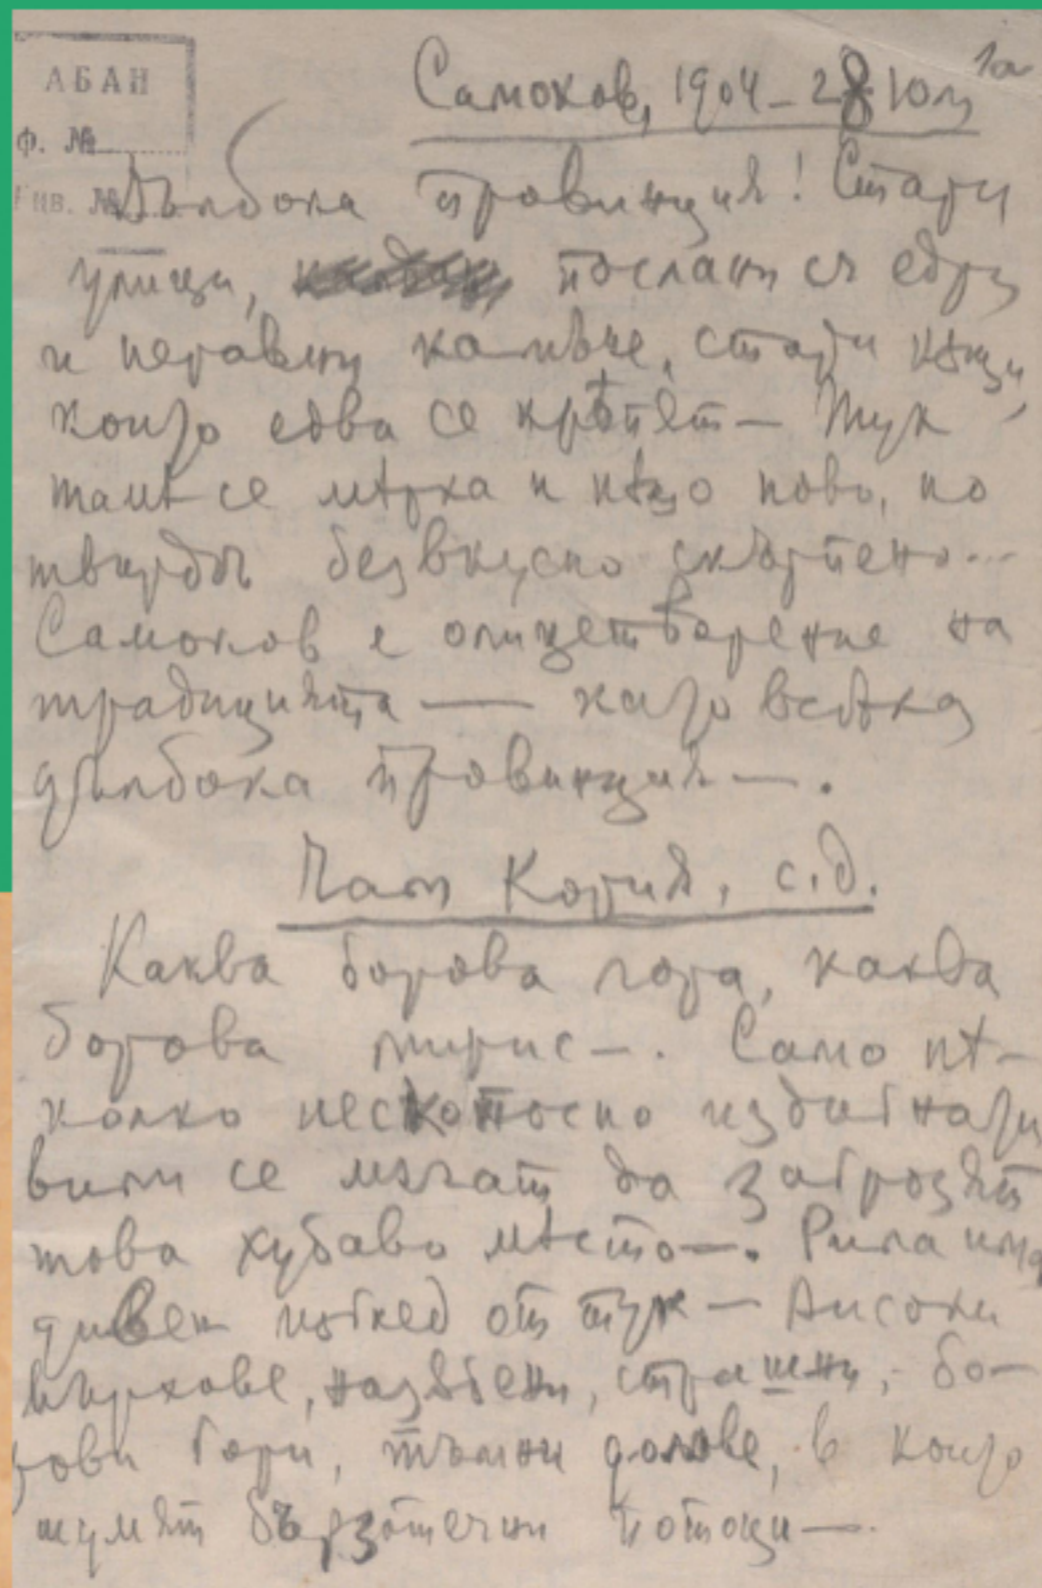 АБАН
Ф. №
Инв. №
1а
Самоков, 1904 – 28 Юли
Дълбока провинция! Стари
улици, послани съ едри
и неравни камъне, стари кѫщи,
които едва се крѣпят — Тук
тамѣ се мѣрка и нѣщо ново, но
твърдѣ безвкусно скърпено...
Самоков е олицетворение на
традицията — като всѣка
дълбока провинция —.
Чам Кория, с.д.
Каква борова гора, каква
борова мирис —. Само нѣ-
колко нескопосно издигнати
вили се мѫчат да загрозят
това хубаво мѣсто —. Рила има
дивен изглед от тук — високи
върхове, назѫбени, страшни, бо-
рови гори, тъмни долове, в които
шумят бързотечни потоци —.